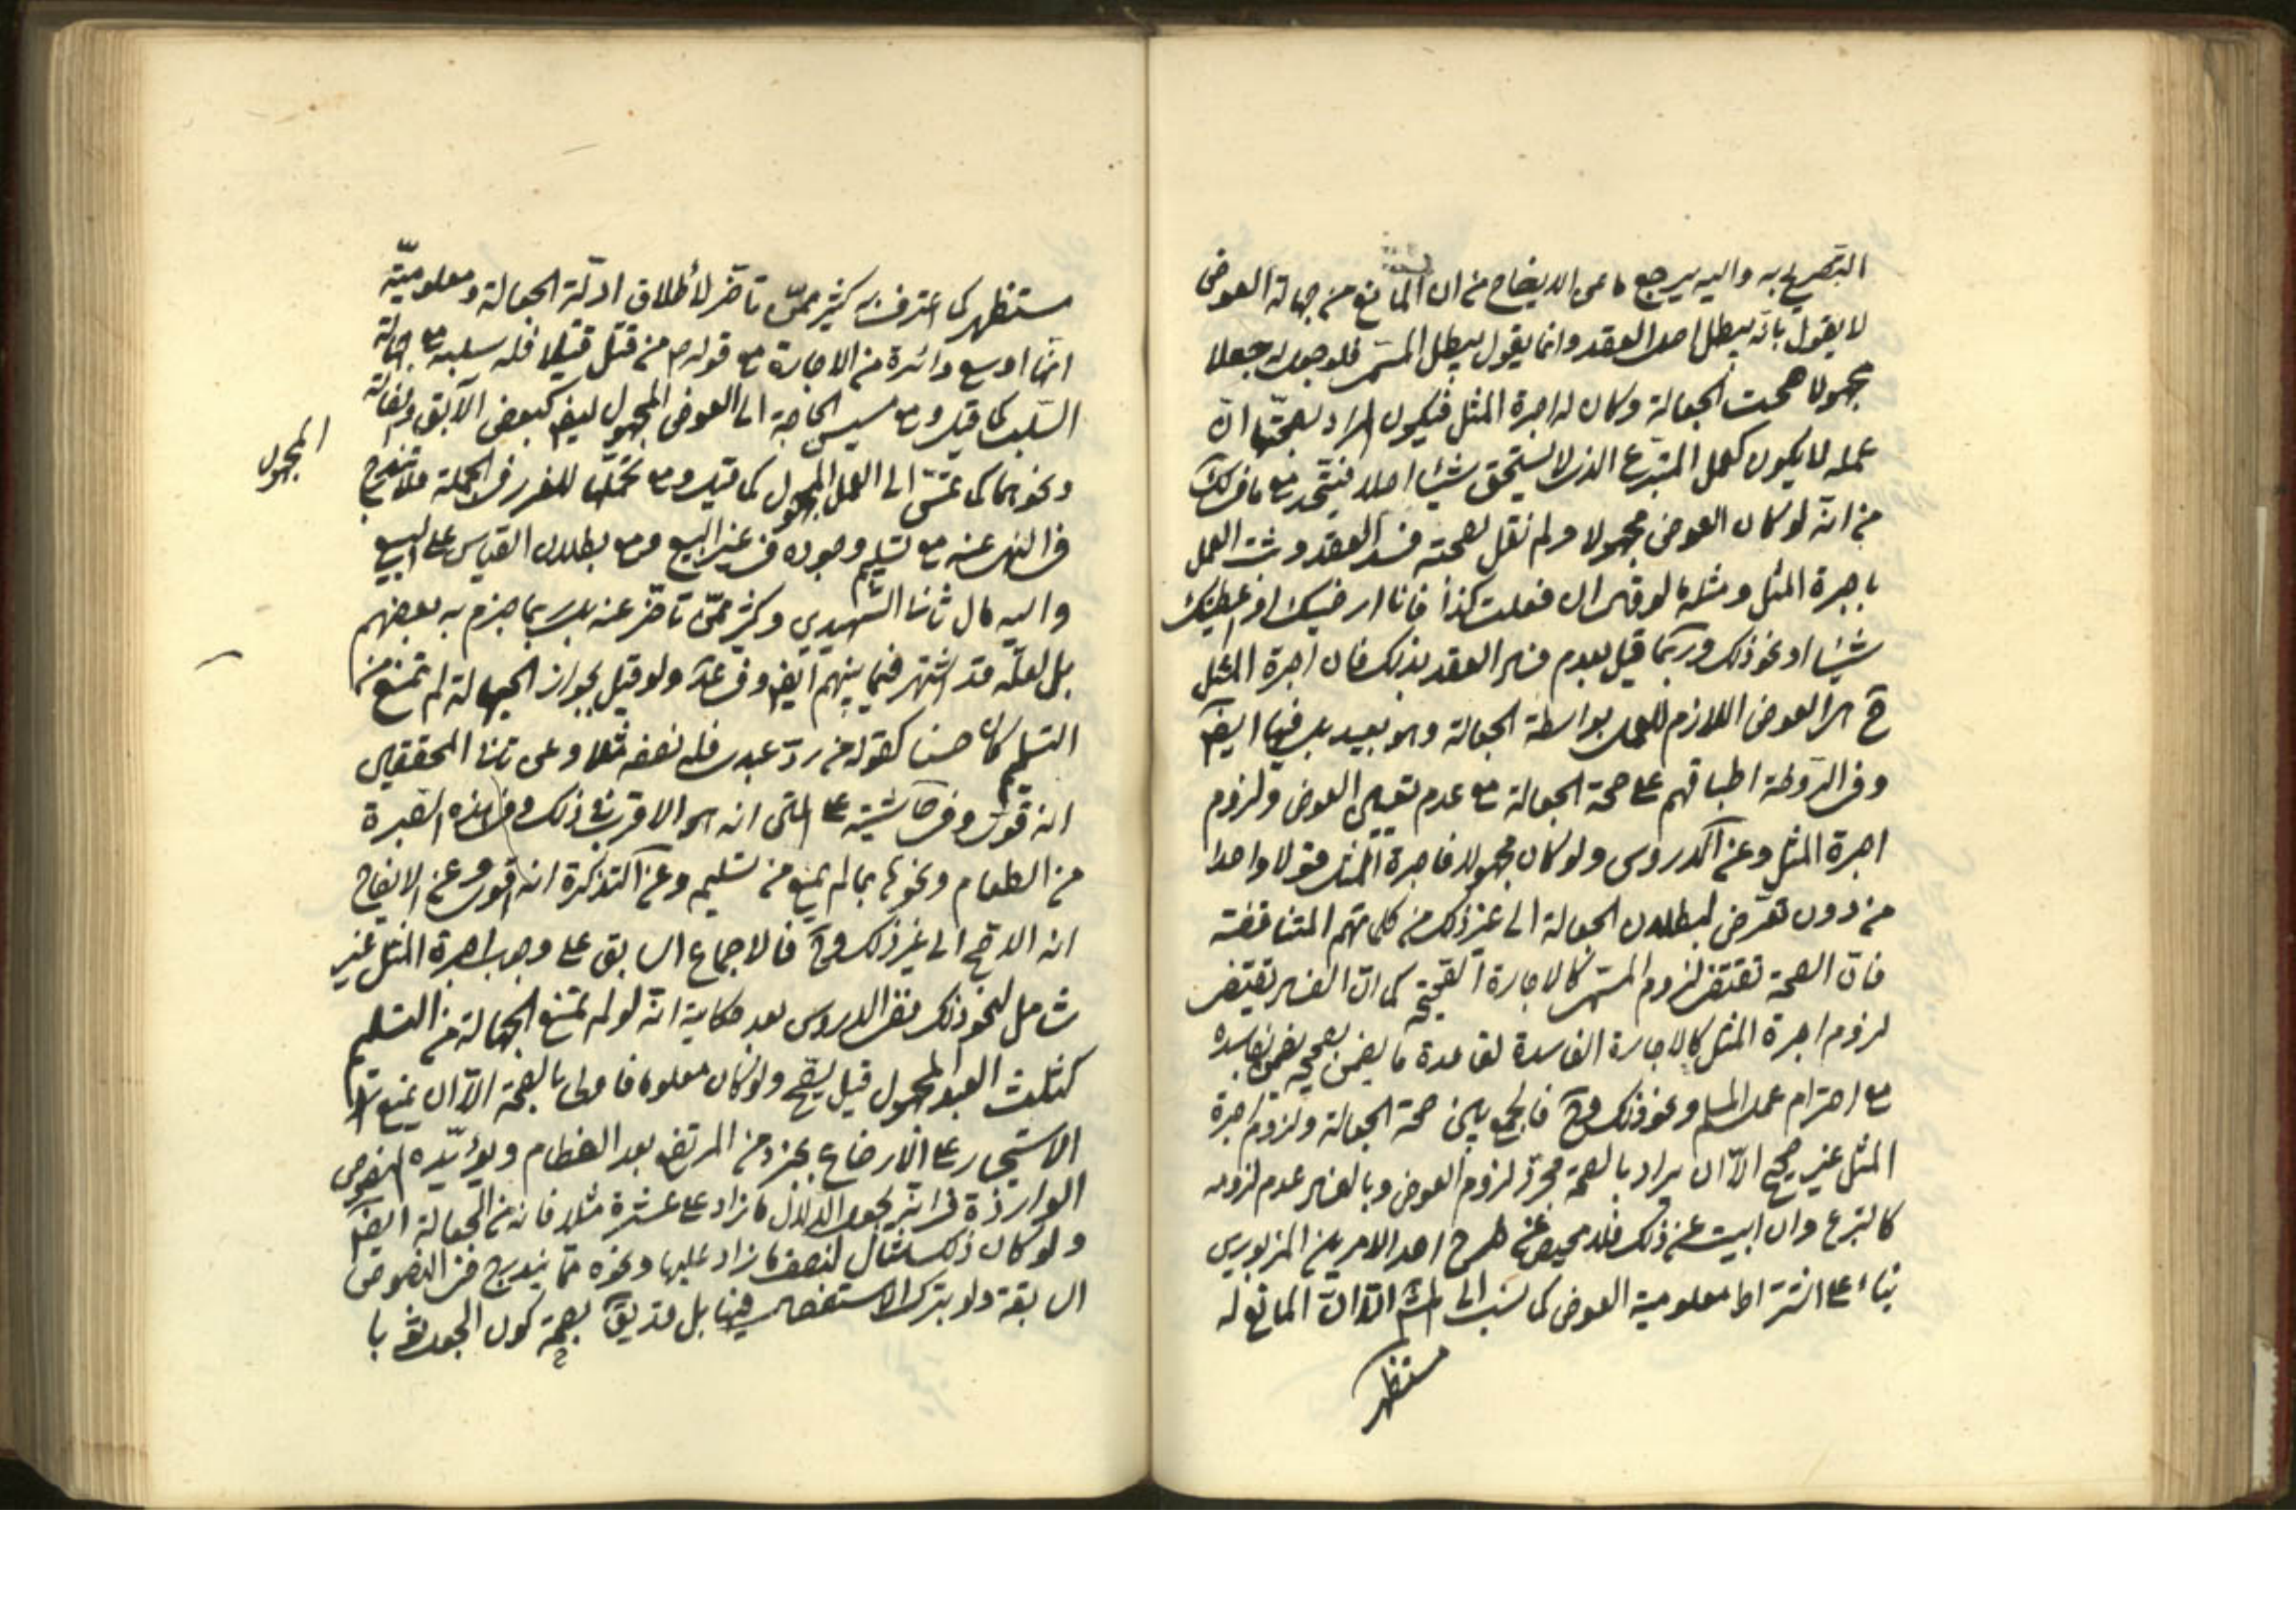 التصريح به واليه يرجع ما عن الايضاح من ان المانع من جهالة العوض
لا يقول بانه يبطل اصل العقد وانما يقول يبطل المسمى فلو جعل له جعلا
مجهولا صحت الجعالة وكان له اجرة المثل فيكون المراد بصحتها ان
عمله لا يكون كعمل المتبرع الذى لا يستحق شيئا اصلا فيتحد مع ما فى لك
من انه لو كان العوض مجهولا ولم نقل بصحته فسد العقد وثبت العمل
باجرة المثل ومثله ما لو قال ان فعلت كذا فانا ارضيك او اعطيك
شيئا او نحو ذلك وربما قيل بعدم فساد العقد بذلك فان اجرة المثل
ح هى العوض اللازم للعمل بواسطة الجعالة وهو بعيد بل فيها ايضا
وفى الروضة اطباقهم على صحة الجعالة مع عدم تعيين العوض ولزوم
اجرة المثل وعن الدروس ولو كان مجهولا فاجرة المثل قولا واحدا
من دون تعرض لبطلان الجعالة الى غير ذلك من كلماتهم المتناقضة
فان الصحة تقتضى لزوم المسمى كالاجارة الصحيحة كما ان الفساد يقتضى
لزوم اجرة المثل كالاجارة الفاسدة لقاعدة ما يضمن بصحيحه يضمن بفاسده
مع احترام عمل المسلم ونحو ذلك وح فالجمع بين صحة الجعالة ولزوم اجرة
المثل غير صحيح الا ان يراد بالصحة مجرد لزوم العوض وبالفساد عدم لزومه
كالتبرع وان ابيت عن ذلك فلا محيص عن طرح احد الامرين المزبورين
بناء على اشتراط معلومية العوض كما نسب الى المشهور الا ان المانع له
مستظهر
مستظهر كما اعترف به كثير ممن تاخر لأطلاق ادلة الجعالة ومعلومية
انها اوسع دائرة من الاجارة مع قوله ص من قتل قتيلا فله سلبه مع جهالة
السلب كما قيل ومع مسيس الحاجة الى العوض المجهول ايضا كبعض الآبق
ونحوهما كما تمس الى العمل المجهول كما قيل ومع تحملها للغرر فى الجملة فلا تندرج
المجهول
فى النهى عنه مع تسليم وجوده فى غير البيع ومع بطلان القياس على البيع
واليه مال ثانى الشهيدين وكثير ممن تاخر عنه بل ربما جزم به بعضهم
بل لعله قد اشتهر فيما بينهم ايضا وفى عد ولو قيل بجواز الجهالة لم تمنع من
التسليم كان حسنا كقوله من رد عبدى فله نصفه مثلا وعن ثانى المحققين
انه قوى وفى حاشيته على المتن انه هو الاقرب فى ذلك وفى هذه الصبرة
من الطعام ونحوها بما لم يمنع من تسليمه وعن التذكرة انه اقوى وعن الايضاح
انه الاصح الى غير ذلك وح فالاجماع السابق على وجوب اجرة المثل غير
شامل لنحو ذلك ففى الدروس بعد حكاية انه لو لم تمنع الجهالة من التسليم
كثلث العبد المجهول قيل يصح ولو كان معلوما فاولى بالصحة الا ان يمنع
الاستيجار على الارضاع بجزء من المرتضع بعد الفطام ويؤيده النصوص
الواردة فى انه يجعل للدلال ما زاد على عشرة مثلا فانه من الجعالة ايضا
ولو كان ذلك فقال لنصف ما زاد عليها ونحوه مما يندرج فى النصوص
السابقة ولو بترك الاستفصال فيها بل قد يقال بصحة كون الجعل